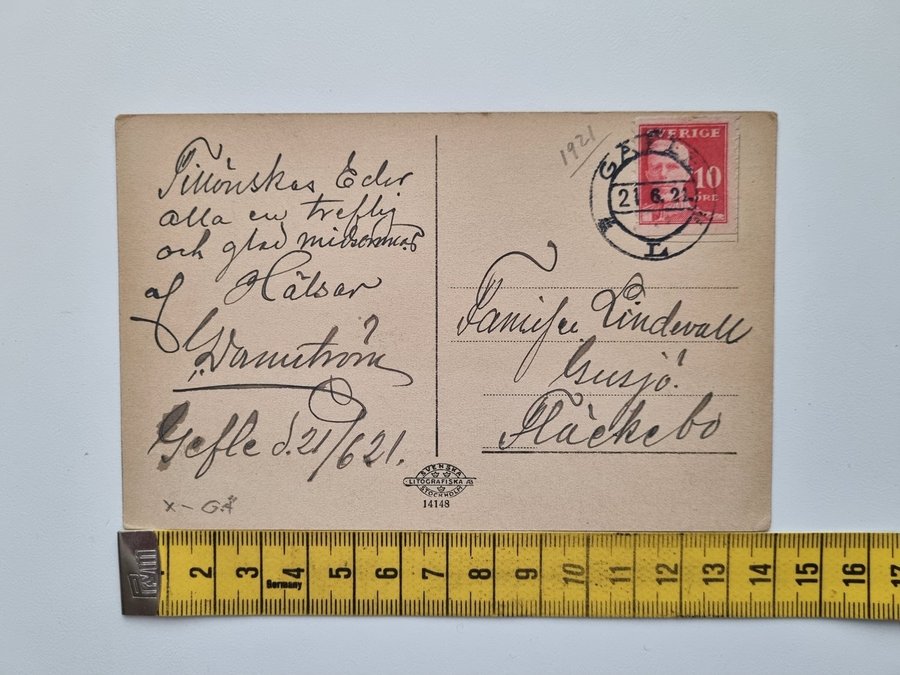 Tillönskas Eder
alla en treflig
och glad midsommar
af Hälsar
Gefle d. 21/6 21.
x - GÄ
1921
SVERIGE
10
ÖRE
GÄFLE
21.6.21
L
Familjen Lindevall
Gusjö.
Fläckebo
SVENSKA
LITOGRAFISKA AB
STOCKHOLM
14148
2 3 4 5 6 7 8 9 10 11 12 13 14 15 16 17
Germany